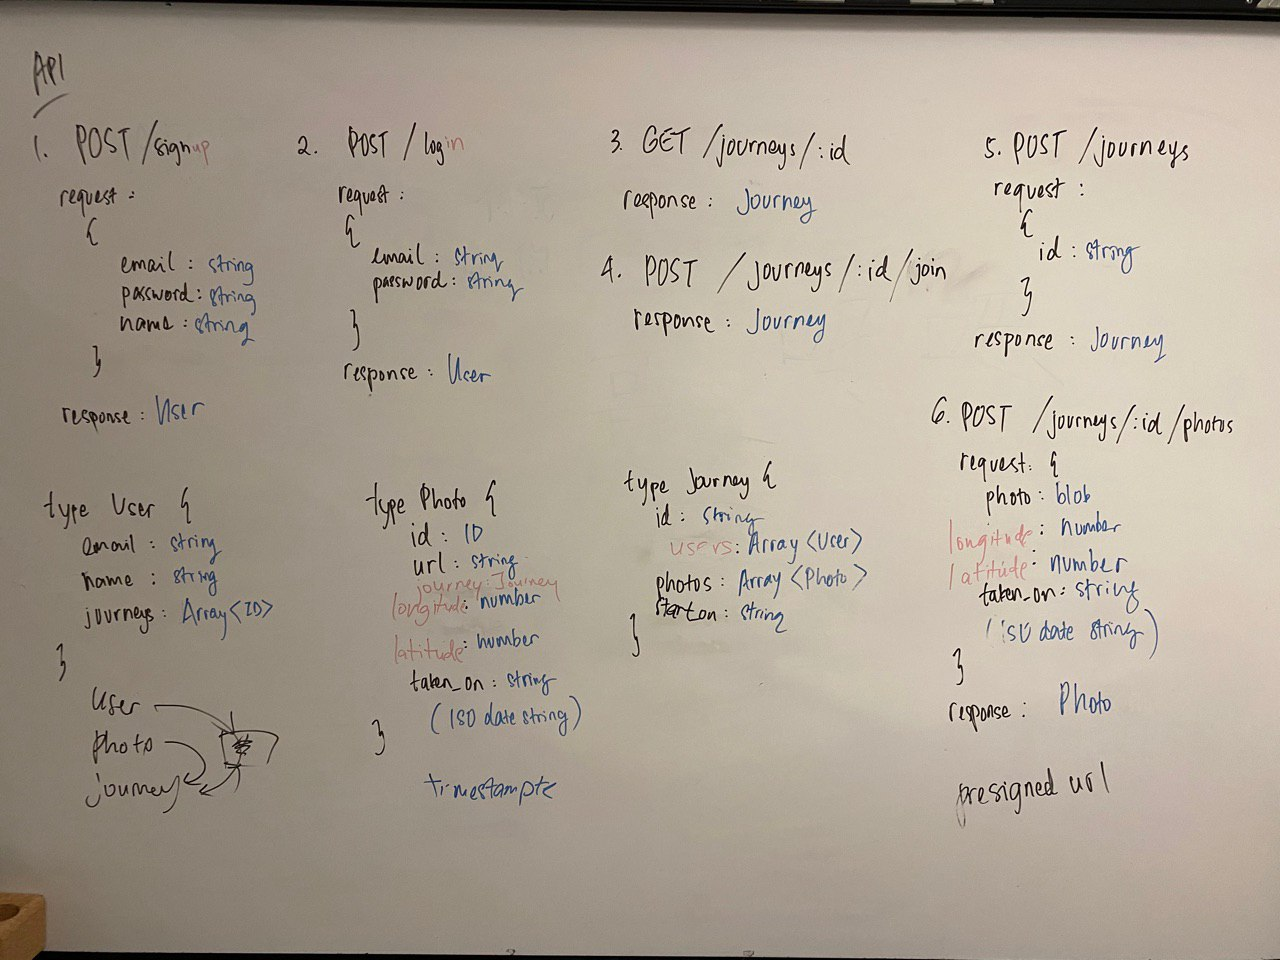 API
1. POST /signup
request :
{
email : string
password : string
name : string
}
response : User
2. POST /login
request :
{
email : string
password : string
}
response : User
3. GET /journeys/:id
response : Journey
4. POST /journeys/:id/join
response : Journey
5. POST /journeys
request :
{
id : string
}
response : Journey
6. POST /journeys/:id/photos
request: {
photo : blob
longitude : number
latitude : number
taken_on : string
(iso date string)
}
response : Photo
presigned url
type User {
email : string
name : string
journeys : Array<ID>
}
type Photo {
id : ID
url : string
journey: Journey
longitude : number
latitude : number
taken_on : string
(ISO date string)
}
type Journey {
id : string
users : Array <User>
photos : Array <Photo>
start_on : string
}
User
photo
journey